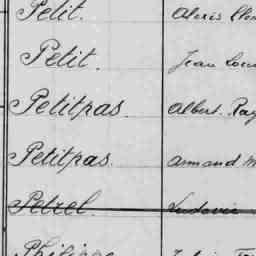 Petit. Alexis
Petit. Jean Louis
Petitpas. Albert. Ray
Petitpas. Armand
Petrel. Ludovic
Philippe